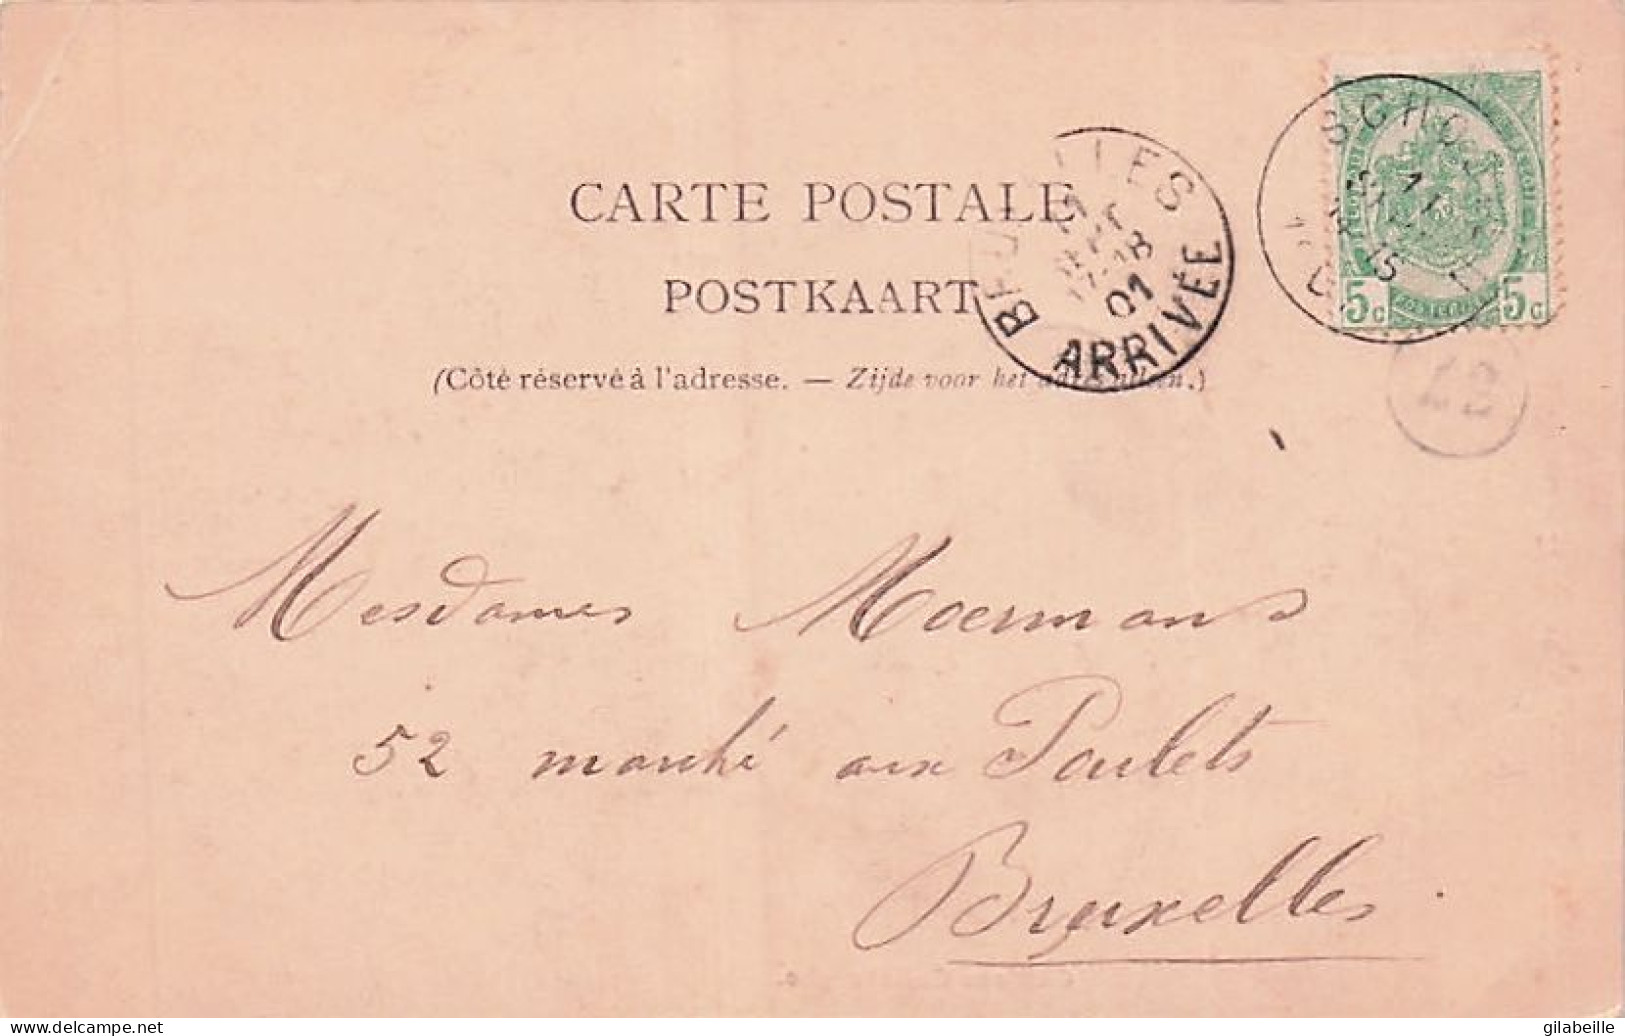 CARTE POSTALE
POSTKAART
(Côté réservé à l'adresse. — Zijde voor het
ARRIVÉE
01
5c 5c
Mesdames Moermans
52 marché aux Poulets
Bruxelles
www.delcampe.net
gilabeille